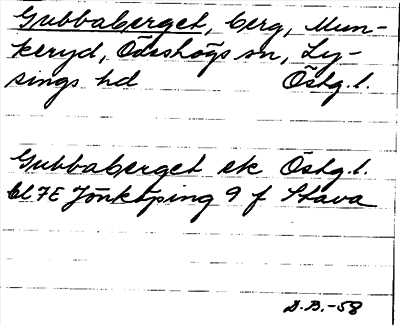 Gubbaberget, berg, Mun-
keryd, Ödeshögs sn, Ly-
sings hd Östg.l.
Gubbaberget ek Östg.l.
7E Jönköping 9 f Stava
D.B.-58